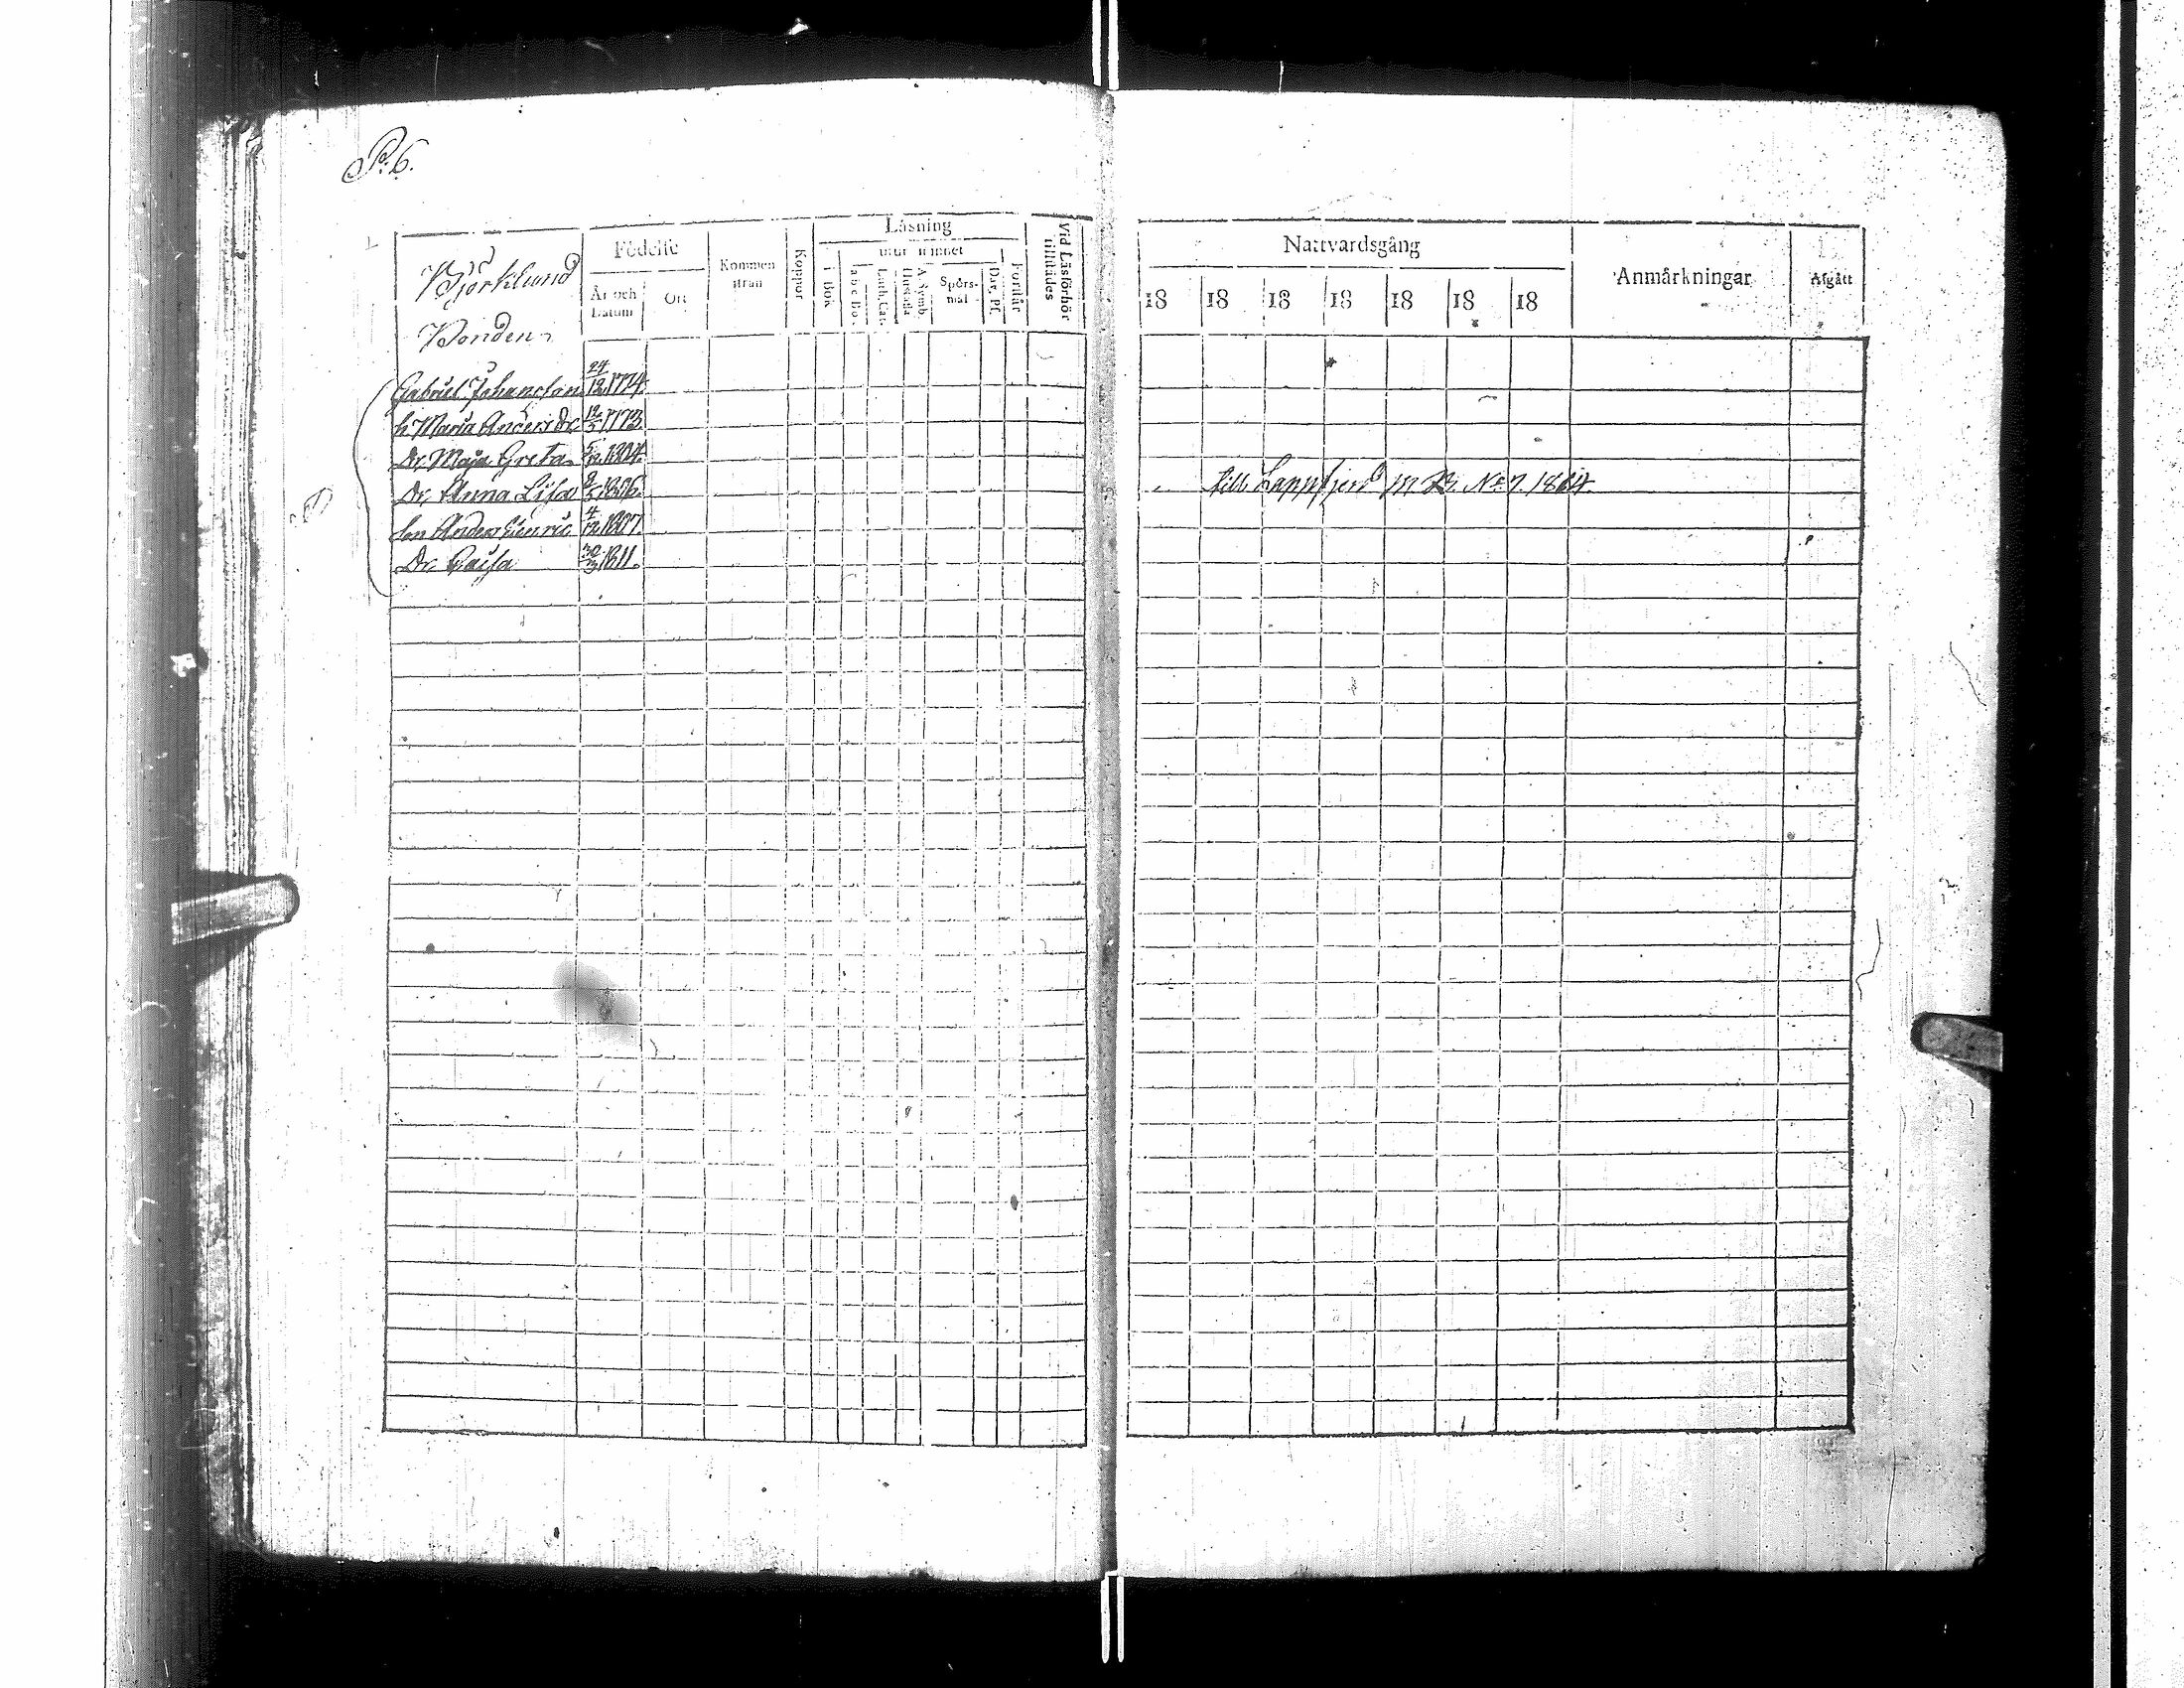 P. 6.
Björklund
Bonden
Födelse
År och Datum
Ort
Kommen ifrån
Koppor
Läsning
utur minnet
i Bok
a b c Bo.
Luth. Cat.
Hustafla
A. Symb.
Spörs-mål
Dav. Ps.
Förstår
Vid Läsförhör tillstädes
Gabriel Johansson 24/12 1774.
h. Maria Anders Dr 12/5 1773.
Dr. Maja Greta 5/12 1804.
Dr. Anna Lisa 9/5 1806.
Son Anders Henric 4/12 1807.
Dr. Caisa 30/3 1811.
Nattvardsgång
Anmärkningar
Afgått
18 18 18 18 18 18 18
till Lappfjerd m. B. No 7. 1814.